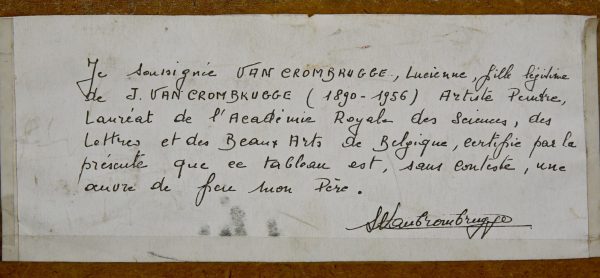 Je soussignée VAN CROMBRUGGE, Lucienne, fille légitime
de J. VAN CROMBRUGGE (1890-1956) Artiste Peintre,
Lauréat de l'Académie Royale des Sciences, des
Lettres et des Beaux Arts de Belgique, certifie par la
présente que ce tableau est, sans conteste, une
œuvre de feu mon Père.
VanCrombrugge